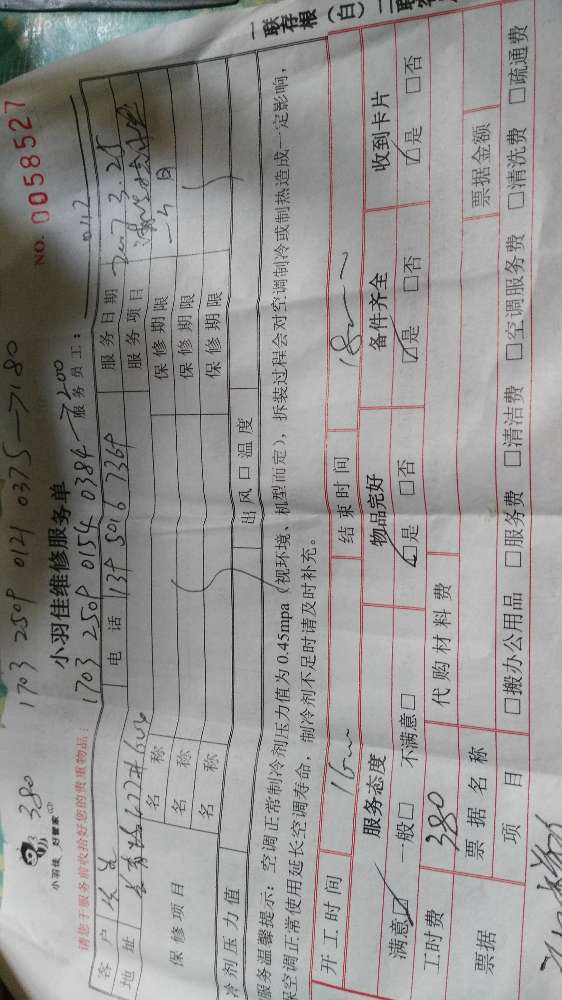 380
1703 2509 0121 0375→7180
小羽佳 好管家
小羽佳维修服务单
NO. 0058527
1703 2509 0154 0384→7200
请您于服务前收拾好您的贵重物品:
服务员工: 0112
客户
电话
服务日期 2017.3.25
地址
服务项目
保修项目
名称
保修期限 一个月
名称
保修期限
名称
保修期限
冷剂压力值
出风口温度
服务温馨提示: 空调正常制冷剂压力值为0.45mpa(视环境、机型而定), 拆装过程会对空调制冷或制热造成一定影响,
保空调正常使用延长空调寿命, 制冷剂不足时请及时补充。
开工时间
结束时间
服务态度
物品完好
备件齐全
收到卡片
满意☑ 一般□ 不满意□
☑是 □否
☑是 □否
☑是 □否
工时费 380
代购材料费
票据
票据名称
票据金额
项目
□搬办公用品 □服务费 □清洁费 □空调服务费 □清洗费 □疏通费
一联存根(白)